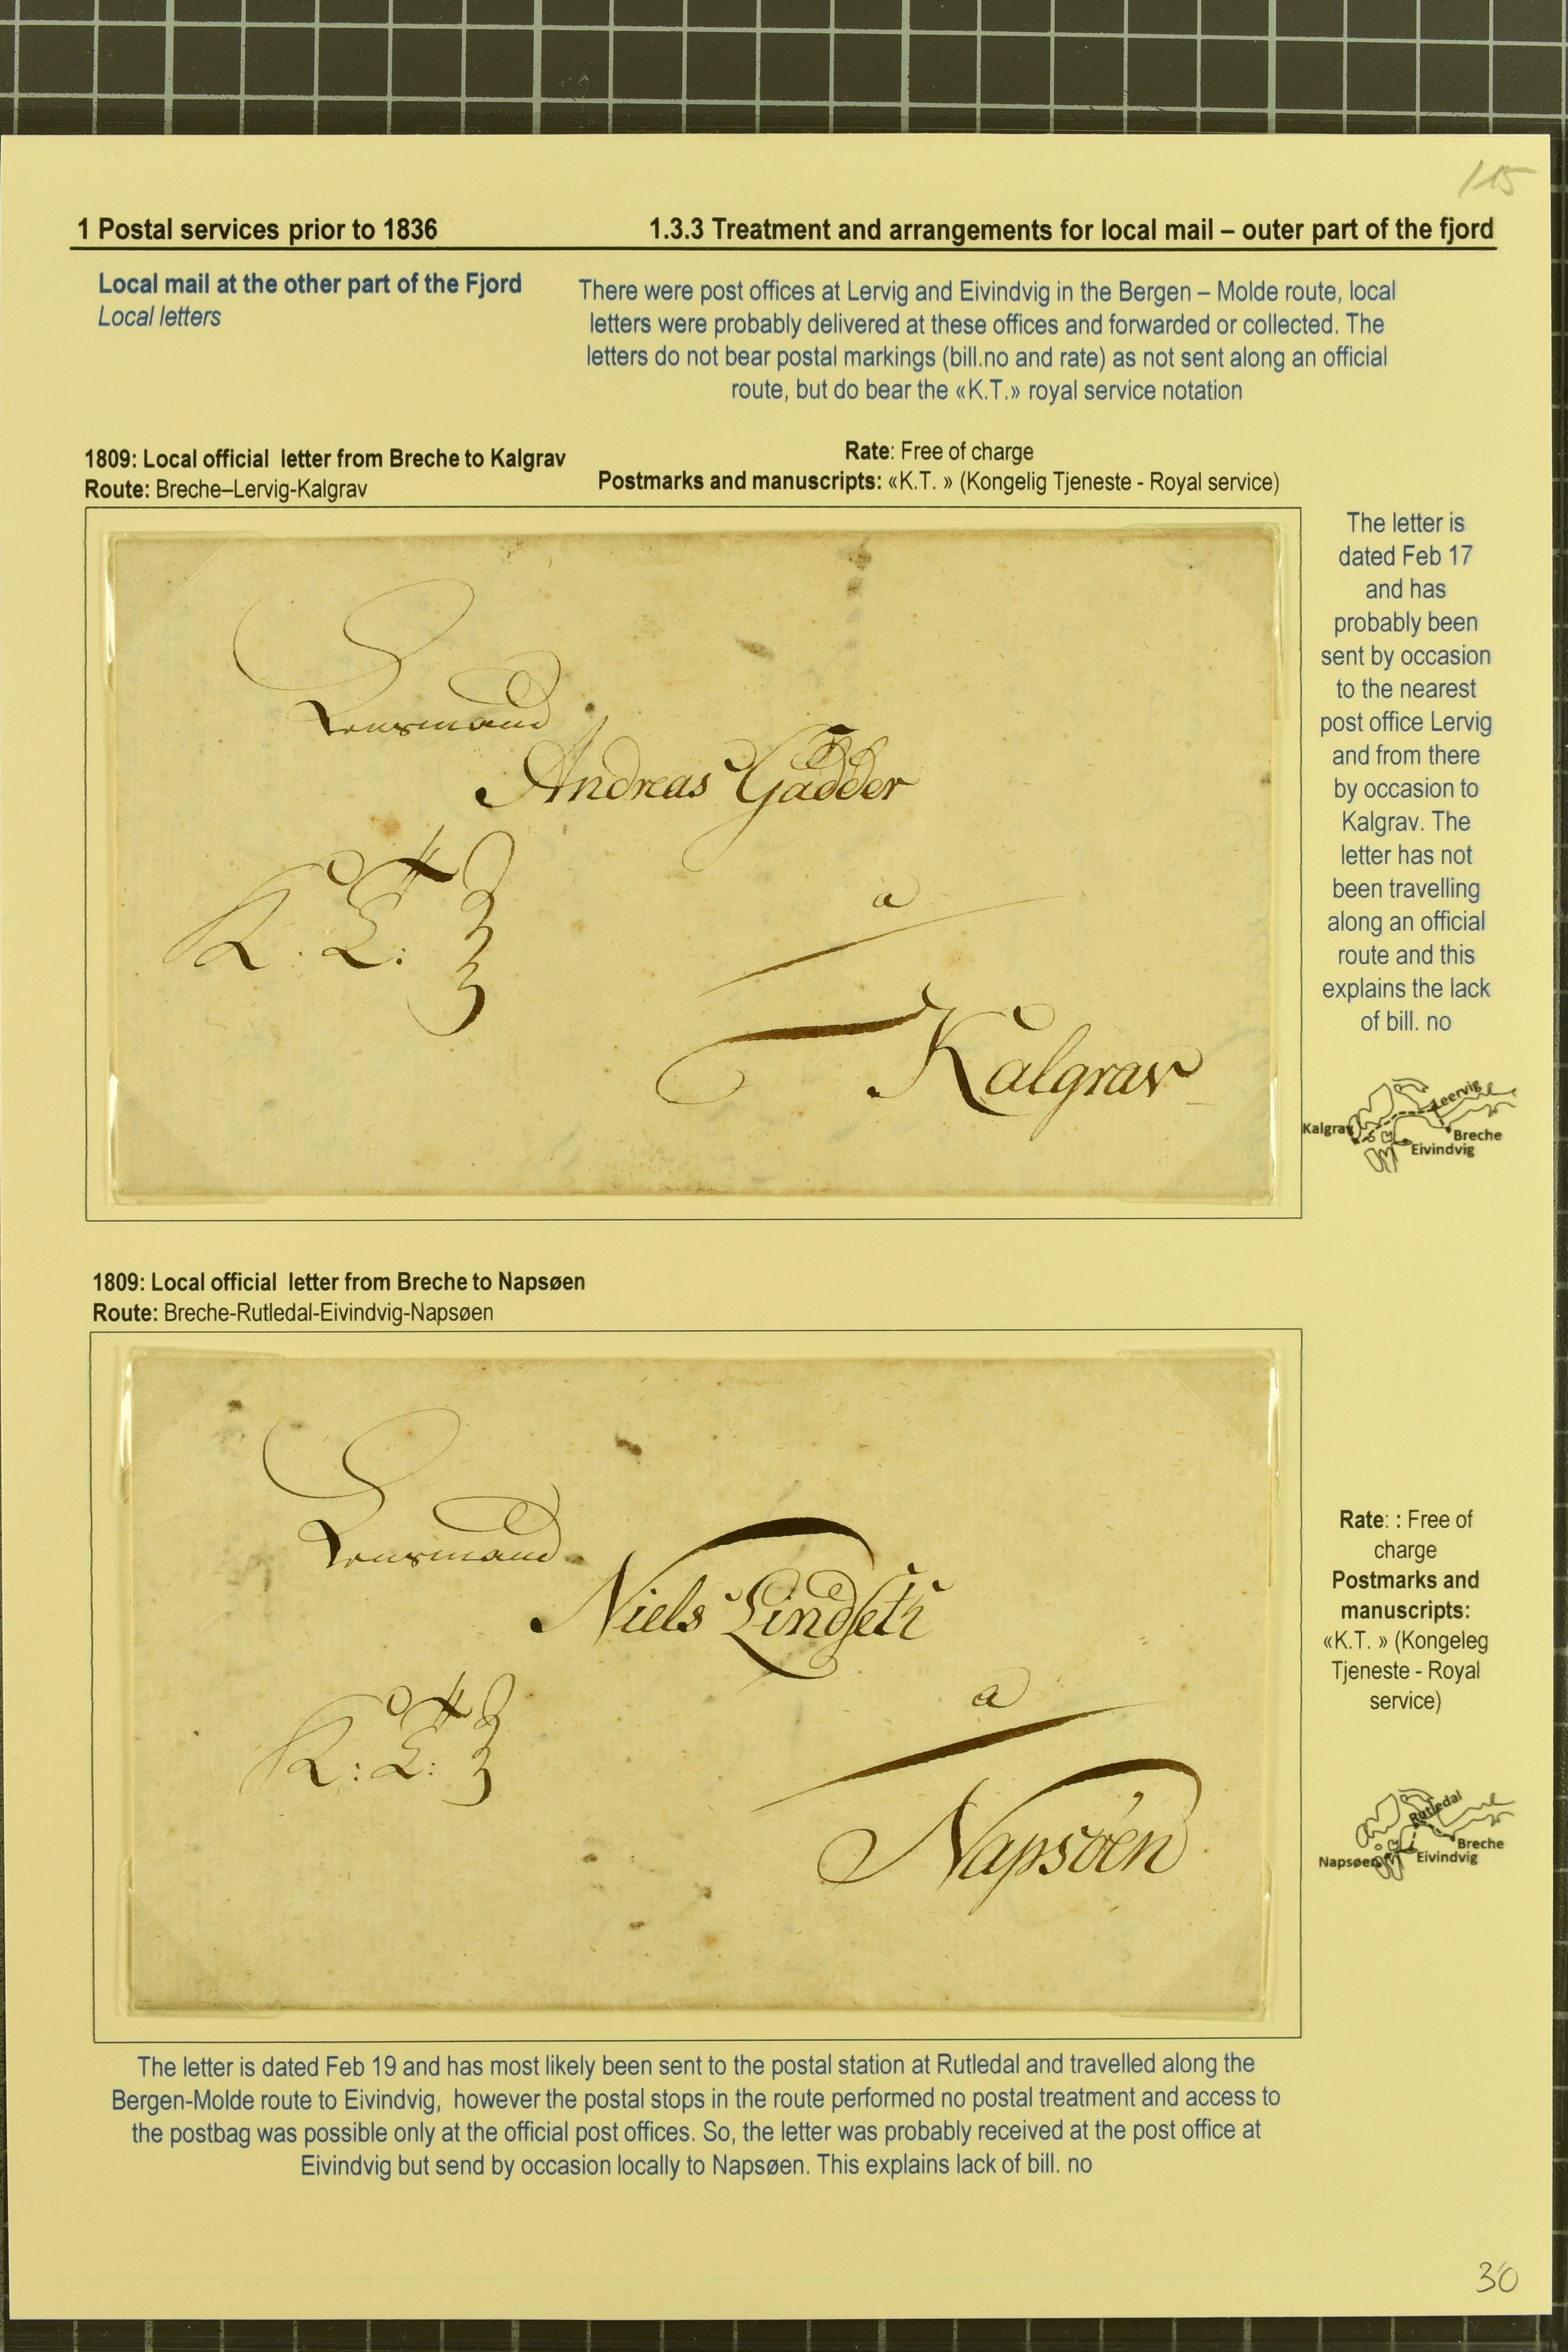 115
1 Postal services prior to 1836
1.3.3 Treatment and arrangements for local mail – outer part of the fjord
Local mail at the other part of the Fjord
Local letters
There were post offices at Lervig and Eivindvig in the Bergen – Molde route, local
letters were probably delivered at these offices and forwarded or collected. The
letters do not bear postal markings (bill.no and rate) as not sent along an official
route, but do bear the «K.T.» royal service notation
1809: Local official letter from Breche to Kalgrav
Route: Breche–Lervig-Kalgrav
Rate: Free of charge
Postmarks and manuscripts: «K.T. » (Kongelig Tjeneste - Royal service)
Lensmand
Andreas Gådder
K. T:
a
Kalgrav
The letter is
dated Feb 17
and has
probably been
sent by occasion
to the nearest
post office Lervig
and from there
by occasion to
Kalgrav. The
letter has not
been travelling
along an official
route and this
explains the lack
of bill. no
Leervig
Kalgrav
Breche
Eivindvig
1809: Local official letter from Breche to Napsøen
Route: Breche-Rutledal-Eivindvig-Napsøen
Lensmand
Niels Lindseth
K: T:
a
Napsøen
Rate: : Free of
charge
Postmarks and
manuscripts:
«K.T. » (Kongeleg
Tjeneste - Royal
service)
Rutledal
Breche
Eivindvig
Napsøen
The letter is dated Feb 19 and has most likely been sent to the postal station at Rutledal and travelled along the
Bergen-Molde route to Eivindvig, however the postal stops in the route performed no postal treatment and access to
the postbag was possible only at the official post offices. So, the letter was probably received at the post office at
Eivindvig but send by occasion locally to Napsøen. This explains lack of bill. no
30